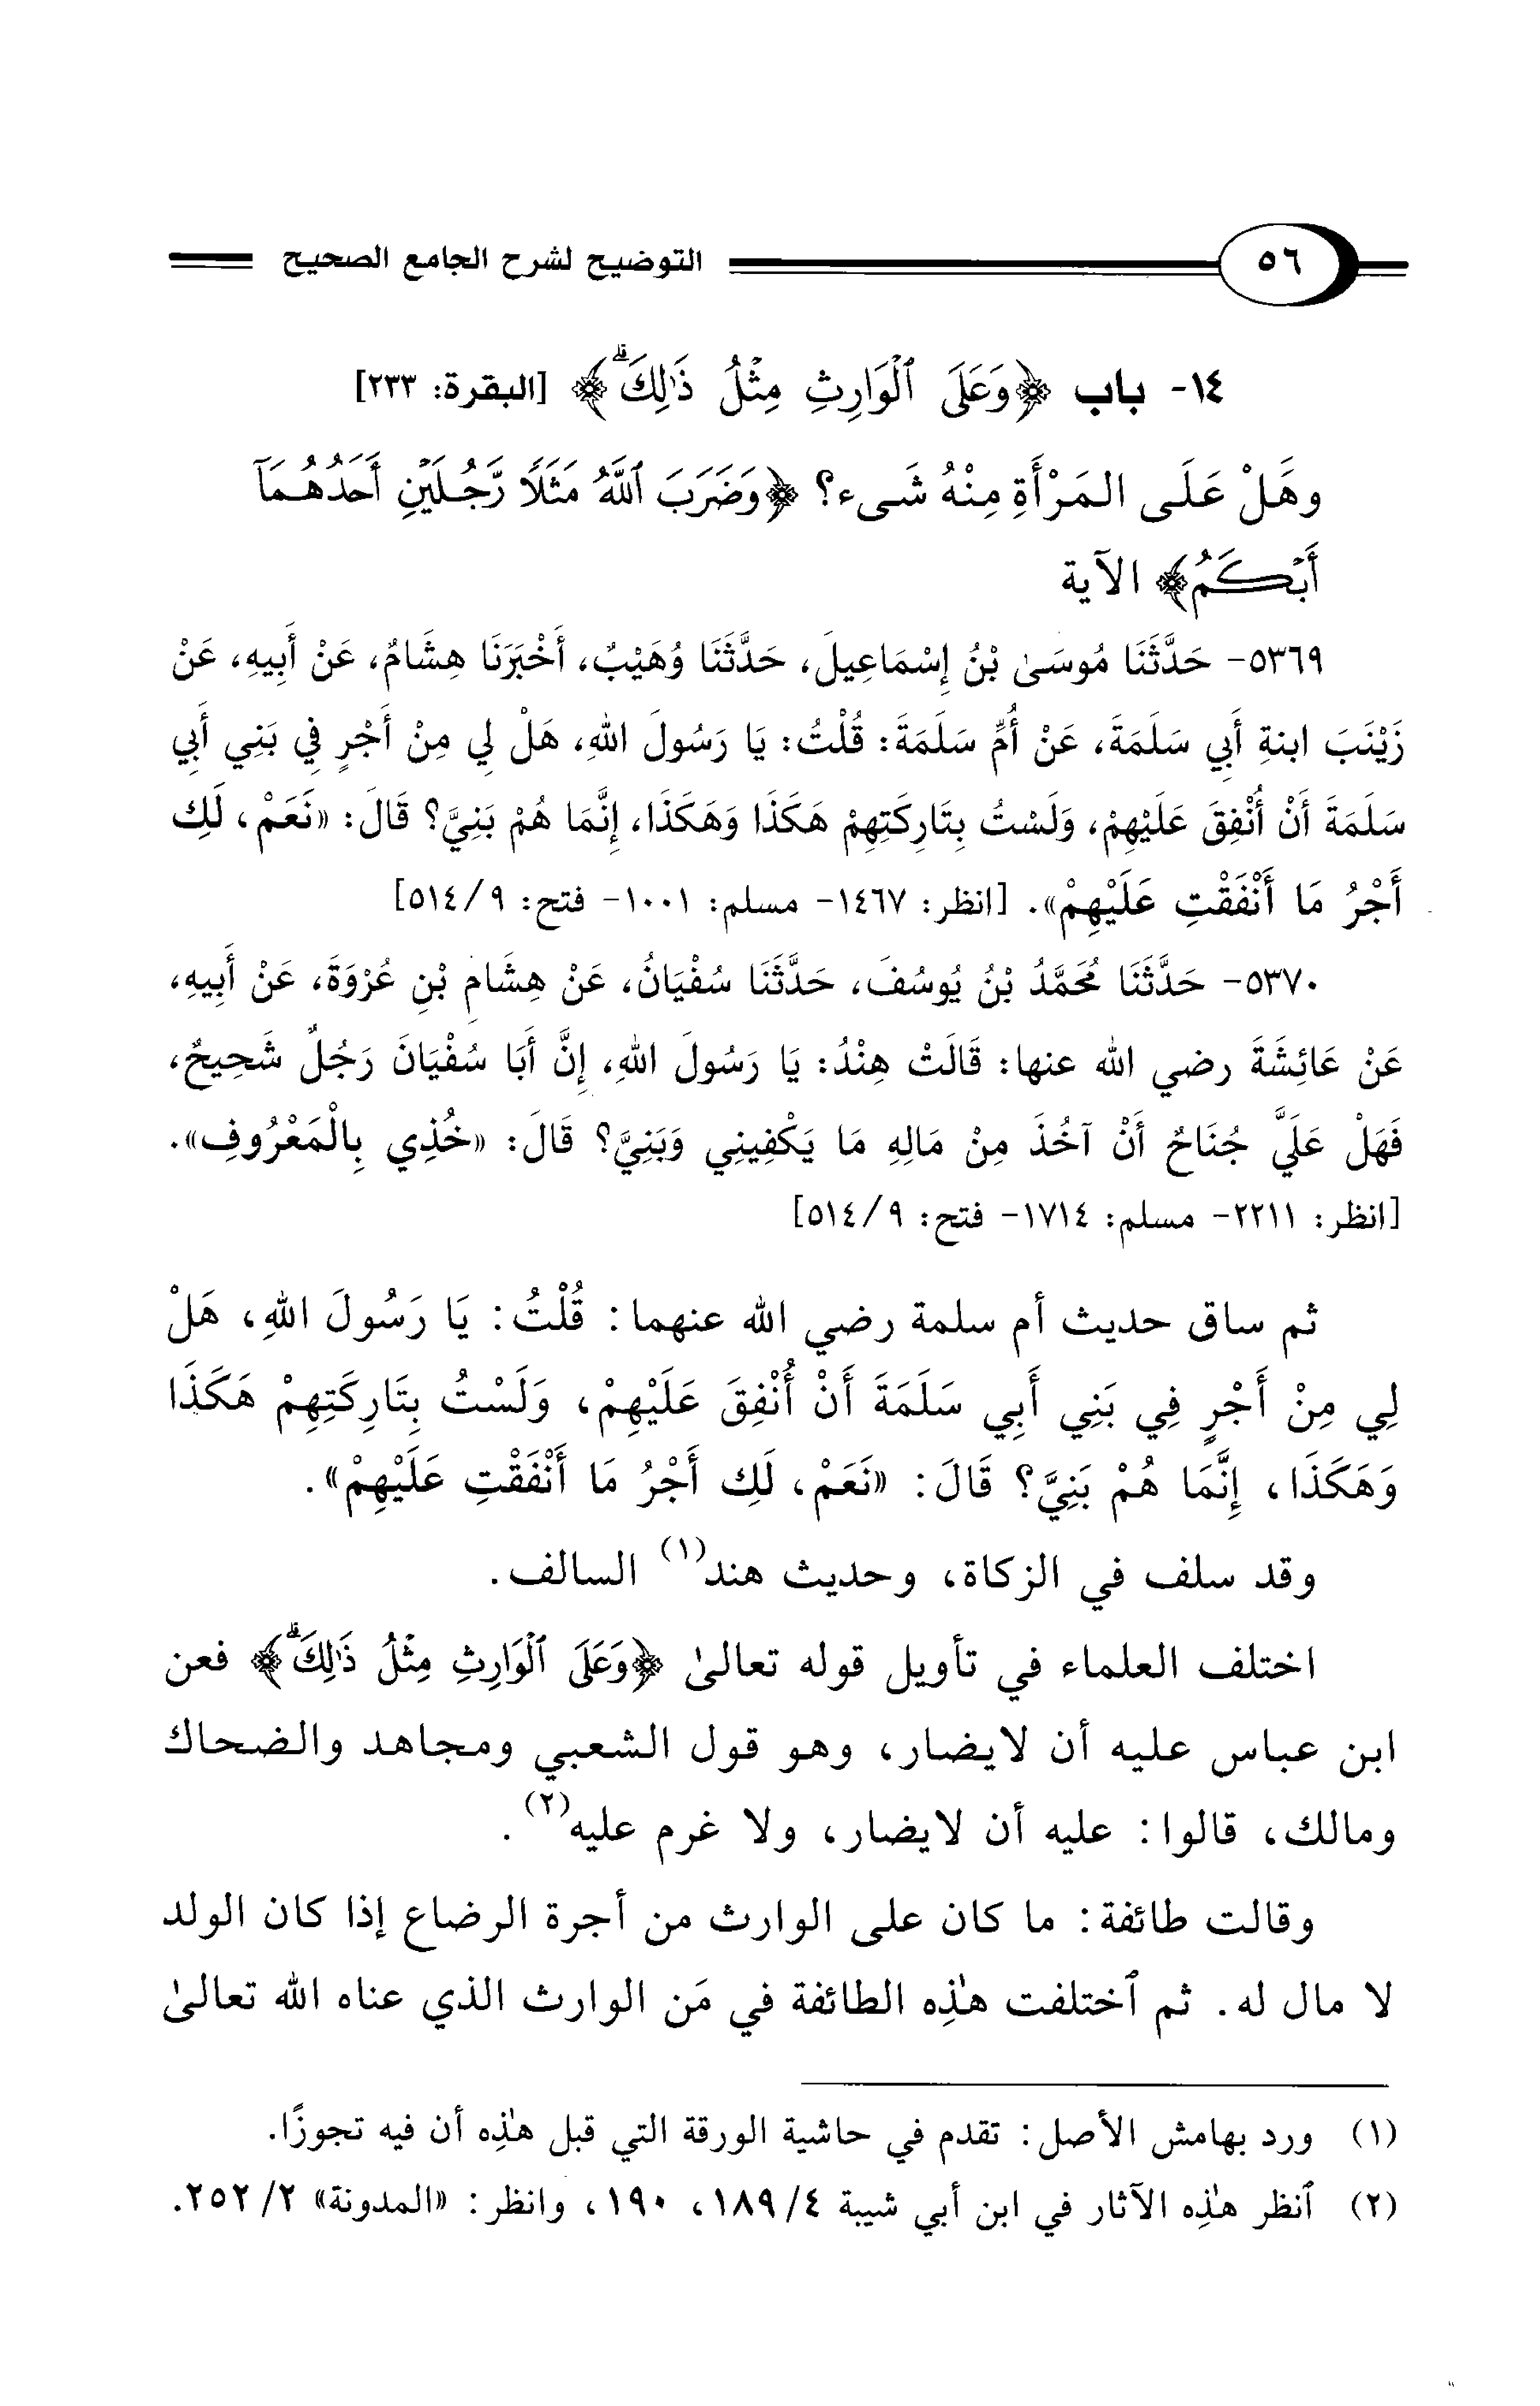 ٥٦ التوضيح لشرح الجامع الصحيح
١٤- باب ﴿وَعَلَى ٱلْوَارِثِ مِثْلُ ذَٰلِكَ ۗ﴾ [البقرة: ٢٣٣]
وهَلْ عَلَى المَرْأَةِ مِنْهُ شَىء؟ ﴿وَضَرَبَ ٱللَّهُ مَثَلًا رَّجُلَيْنِ أَحَدُهُمَآ
أَبْكَمُ﴾ الآية
٥٣٦٩- حَدَّثَنَا مُوسَىٰ بْنُ إِسْمَاعِيلَ، حَدَّثَنَا وُهَيْبٌ، أَخْبَرَنَا هِشَامٌ، عَنْ أَبِيهِ، عَنْ
زَيْنَبَ ابنةِ أَبِي سَلَمَةَ، عَنْ أُمِّ سَلَمَةَ: قُلْتُ: يَا رَسُولَ اللهِ، هَلْ لِي مِنْ أَجْرٍ فِي بَنِي أَبِي
سَلَمَةَ أَنْ أُنْفِقَ عَلَيْهِمْ، وَلَسْتُ بِتَارِكَتِهِمْ هَكَذَا وَهَكَذَا، إِنَّمَا هُمْ بَنِيَّ؟ قَالَ: «نَعَمْ، لَكِ
أَجْرُ مَا أَنْفَقْتِ عَلَيْهِمْ». [انظر: ١٤٦٧- مسلم: ١٠٠١- فتح: ٩/ ٥١٤]
٥٣٧٠- حَدَّثَنَا مُحَمَّدُ بْنُ يُوسُفَ، حَدَّثَنَا سُفْيَانُ، عَنْ هِشَامِ بْنِ عُرْوَةَ، عَنْ أَبِيهِ،
عَنْ عَائِشَةَ رضي الله عنها: قَالَتْ هِنْدُ: يَا رَسُولَ اللهِ، إِنَّ أَبَا سُفْيَانَ رَجُلٌ شَحِيحٌ،
فَهَلْ عَلَيَّ جُنَاحٌ أَنْ آخُذَ مِنْ مَالِهِ مَا يَكْفِينِي وَبَنِيَّ؟ قَالَ: «خُذِي بِالْمَعْرُوفِ».
[انظر: ٢٢١١- مسلم: ١٧١٤- فتح: ٩/ ٥١٤]
ثم ساق حديث أم سلمة رضي الله عنهما: قُلْتُ: يَا رَسُولَ اللهِ، هَلْ
لِي مِنْ أَجْرٍ فِي بَنِي أَبِي سَلَمَةَ أَنْ أُنْفِقَ عَلَيْهِمْ، وَلَسْتُ بِتَارِكَتِهِمْ هَكَذَا
وَهَكَذَا، إِنَّمَا هُمْ بَنِيَّ؟ قَالَ: «نَعَمْ، لَكِ أَجْرُ مَا أَنْفَقْتِ عَلَيْهِمْ».
وقد سلف في الزكاة، وحديث هند(١) السالف.
اختلف العلماء في تأويل قوله تعالىٰ ﴿وَعَلَى ٱلْوَارِثِ مِثْلُ ذَٰلِكَ ۗ﴾ فعن
ابن عباس عليه أن لايضار، وهو قول الشعبي ومجاهد والضحاك
ومالك، قالوا: عليه أن لايضار، ولا غرم عليه(٢).
وقالت طائفة: ما كان على الوارث من أجرة الرضاع إذا كان الولد
لا مال له. ثم ٱختلفت هٰذِه الطائفة في مَن الوارث الذي عناه الله تعالىٰ
(١) ورد بهامش الأصل: تقدم في حاشية الورقة التي قبل هٰذِه أن فيه تجوزًا.
(٢) ٱنظر هٰذِه الآثار في ابن أبي شيبة ٤/ ١٨٩، ١٩٠، وانظر: «المدونة» ٢/ ٢٥٢.